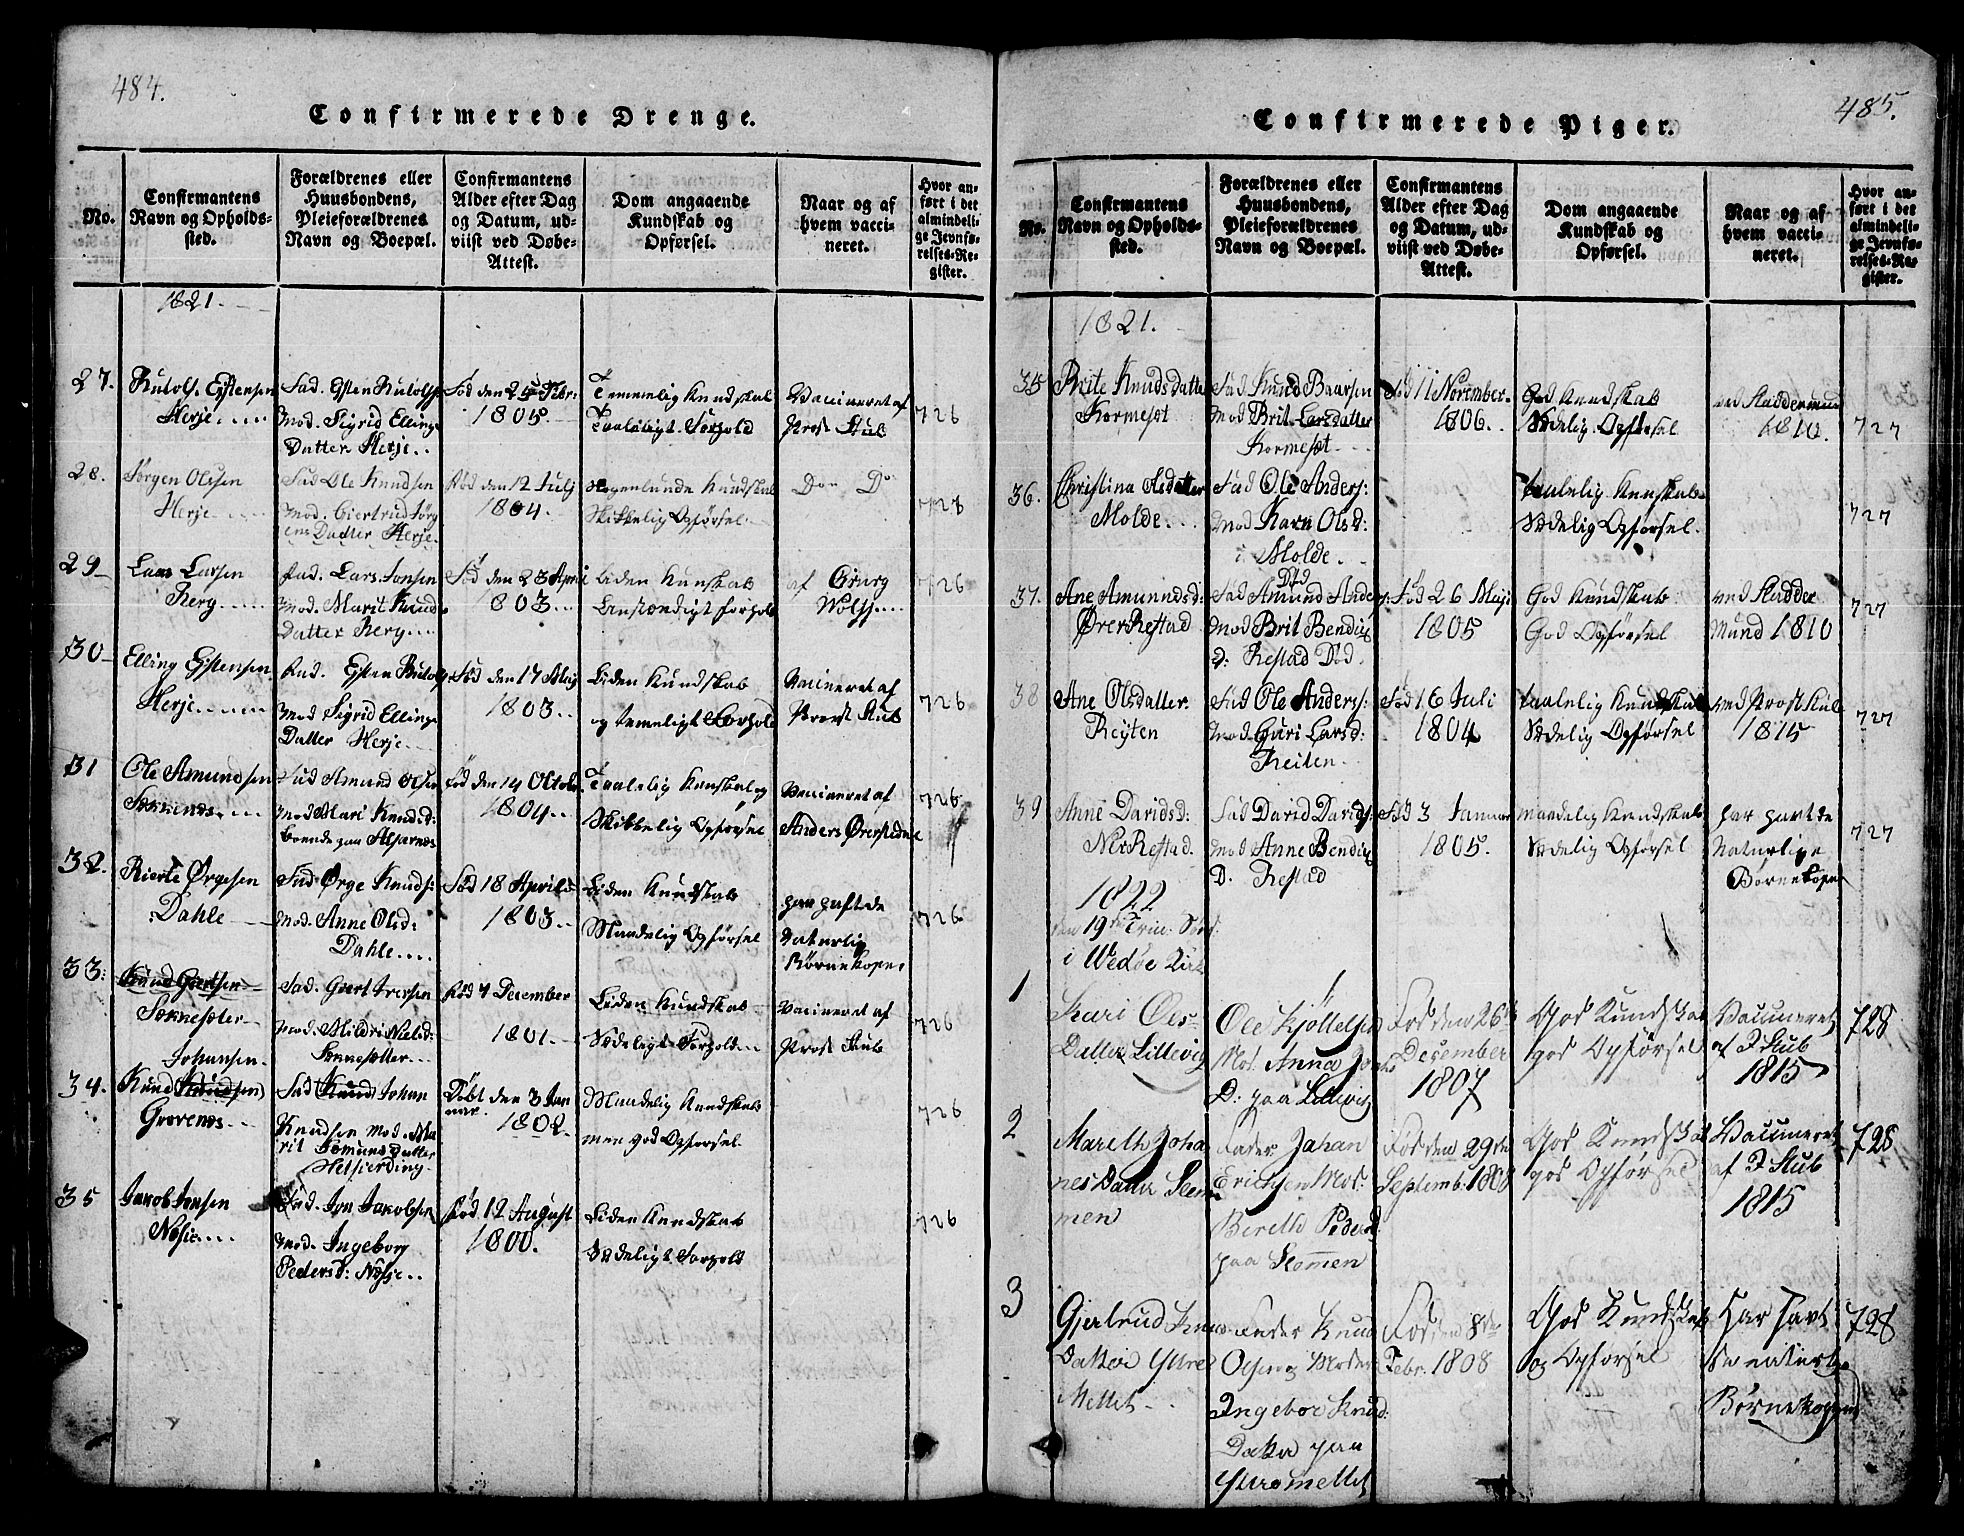 484.
Confirmerede Drenge.
No.
Confirmantens
Navn og Opholds-
sted.
Forældrenes eller
Huusbondens,
Pleieforældrenes
Navn og Boepæl.
Confirmantens
Alder efter Dag
og Datum, ud-
viist ved Døbe-
Attest.
Dom angaaende
Kundskab og
Opførsel.
Naar og af
hvem vacci-
neret.
Hvor an-
ført i det
almindeli-
ge Jevnfø-
relses-Re-
gister.
1821.
27.
Herje
Fad.
Mod. Sigrid Ellings
Datter Herje
Fød den 25 Febr:
1805.
Temmelig Kundskab
Taaleligt Forhold
Vaccineret af
Prost Stub
726
28.
Jørgen Olsen
Herje
Fad Ole Knudsen
Mod. Giertrud Jørg
ens Datter Herje
Fød den 12 Julj
1804.
Nogenlunde Kundskab
Skikkelig Opførsel
Do Do
726
29
Lars Larsen
Fad. Lars Jonsen
Mod. Marit Knuds
Datter
Fød den 23 April
1803
Liden Kunskab
Anstændigt forhold
af Chirurg
Wolff
726
30
Elling Eistensen
Herje
Fad.
Mod Sigrid Ellings
Datter Herje
Fød den 17 Maj
1803
Liden Kundskab
og temeligt Forhold
Vaccineret af
Provst Stub
726
31
Ole Amundsen
Fad Amund Olsen
Mod Mari Knudsd:
boende paa
Fød den 14 Oktob.
1804
Taalelig Kunskab og
Skikkelig Opførsel
Vaccineret af
Anders
726
32.
Dahle
Fad Ørge Knuds:
Mod. Anne Olsd:
Dahle
Fød 18 April
1803
Liden Kundskab
Maadelig Opførsel
har haft de
naturlig
Børnekoper
726
33:
Knud Giertsen
Sæknesæter
Fad. Giert Iversen
Mod. Mildri Nielsd:
Fød 7 December
1801.
Liden Kundskab
Sædeligt Forhold
Vaccineret af
Prost Stub
726
Johansen
34.
Knud Knudsen
Grovenæs
Fad Knud Johan
Knudsen Mod. Ma
rit Datter
Døbt den 3 Jan
uar 1802
Maadelig Kundskab
men god Opførsel
726
35
Jakob Jonsen
Nøsie
Fad. Jon Jakobsen
Mod. Ingeborg
Pedersd: Nøsje
Fød 12 August
1800.
Liden Kundskab
Sædeligt Forhold
726
485.
Confirmerede Piger.
No.
Confirmantens
Navn og Opholds-
sted.
Forældrenes eller
Huusbondens,
Pleieforældrenes
Navn og Boepæl.
Confirmantens
Alder efter Dag
og Datum, ud-
viist ved Døbe-
Attest.
Dom angaaende
Kundskab og
Opførsel.
Naar og af
hvem vacci-
neret.
Hvor an-
ført i det
almindeli-
ge Jevnfø-
relses-Re-
gister.
1821.
35
Brite Knudsdatter
Kormesæt
Fad Knud Baarsen
Mod Brit Larsdatter
Kormesæt
Fød 11 November
1806.
God Kundskab
Sædelig Opførsel
ved Haddermund
1810.
727
36.
Christina Olsdatter
Molde
Fad Ole Anders:
Mod Karn Olsd:
i Molde
taalelig Kunskab
Sædelig Opførsel.
727
37.
Ane Amunndsd:
Fad Amund Anders: Død
Mod Brit Bendix
D: Restad Død
Fød 26 Maji
1805
God Kundskab
God Opførsel
ved Hadder
Mund 1810
727
38
Ane Olsdatter
Reiten
Fad Ole Anderss:
Mod Guri Larsd:
Reiten
Fød 16 Juli
1804
taalelig Kundskab
Sædelig Opførsel
ved Prost Stub
1815
727
39
Anne Davidsd:
Fad David Davids:
Mod Anne Bendix
D: Restad
Fød 3 Januar
1805.
maadelig Kundskab
Sædelig Opførsel
har havt de
Naturlige
Børnekoper
727
1822
den 19de Trin: Sønd:
i Wedøe Kirk
1
Kari Oles-
Datter Lillevig
Ole Kjøttelsen
Mod. Anna Jons
D: paa Lillevig
Fød den 26de
December
1807
God Kundskab
god Opførsel
Vaccineret
af F Stub
1815
728
2
Mareth Joha
nes Datter
men
Fader Johan
Erichsen Mod:
Bereth Pedersd
paa
Fød den 29de
Septemb: 1808
God Kundskab
god Opførsel
Vaccineret
af F Stub
1815
728
3
Gjertrud Knuds
Datter Yttre
Mellet
Fader Knud
Olsen og Moder
Ingebor Knud:
Datter paa
Yttremellet
Fød den 8de
Febr. 1808
God Kundskab
og Opførsel
Har havt
de naturlige
Børnekopper
728